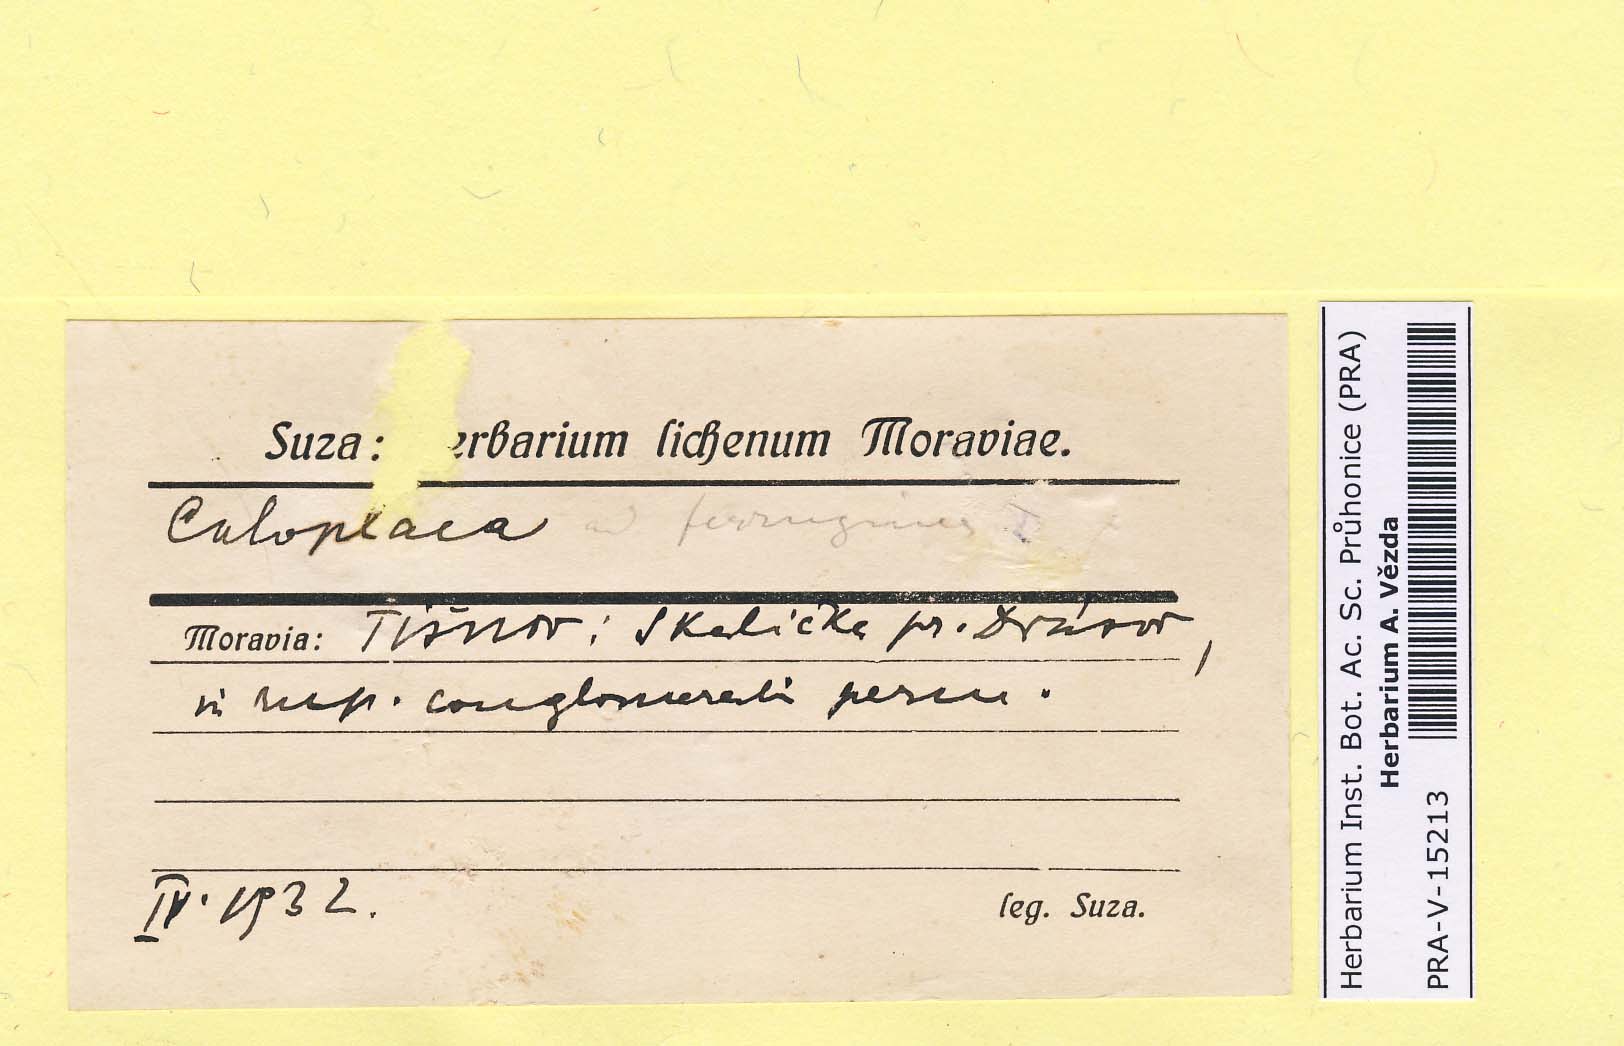 Suza: erbarium lichenum Moraviae.
Caloplaca ad ferruginea
Moravia: Tišnov; Skalička pr. Drásov,
in rup. conglomerati perm.
IV. 1932.
leg. Suza.
Herbarium Inst. Bot. Ac. Sc. Průhonice (PRA)
Herbarium A. Vězda
PRA-V-15213